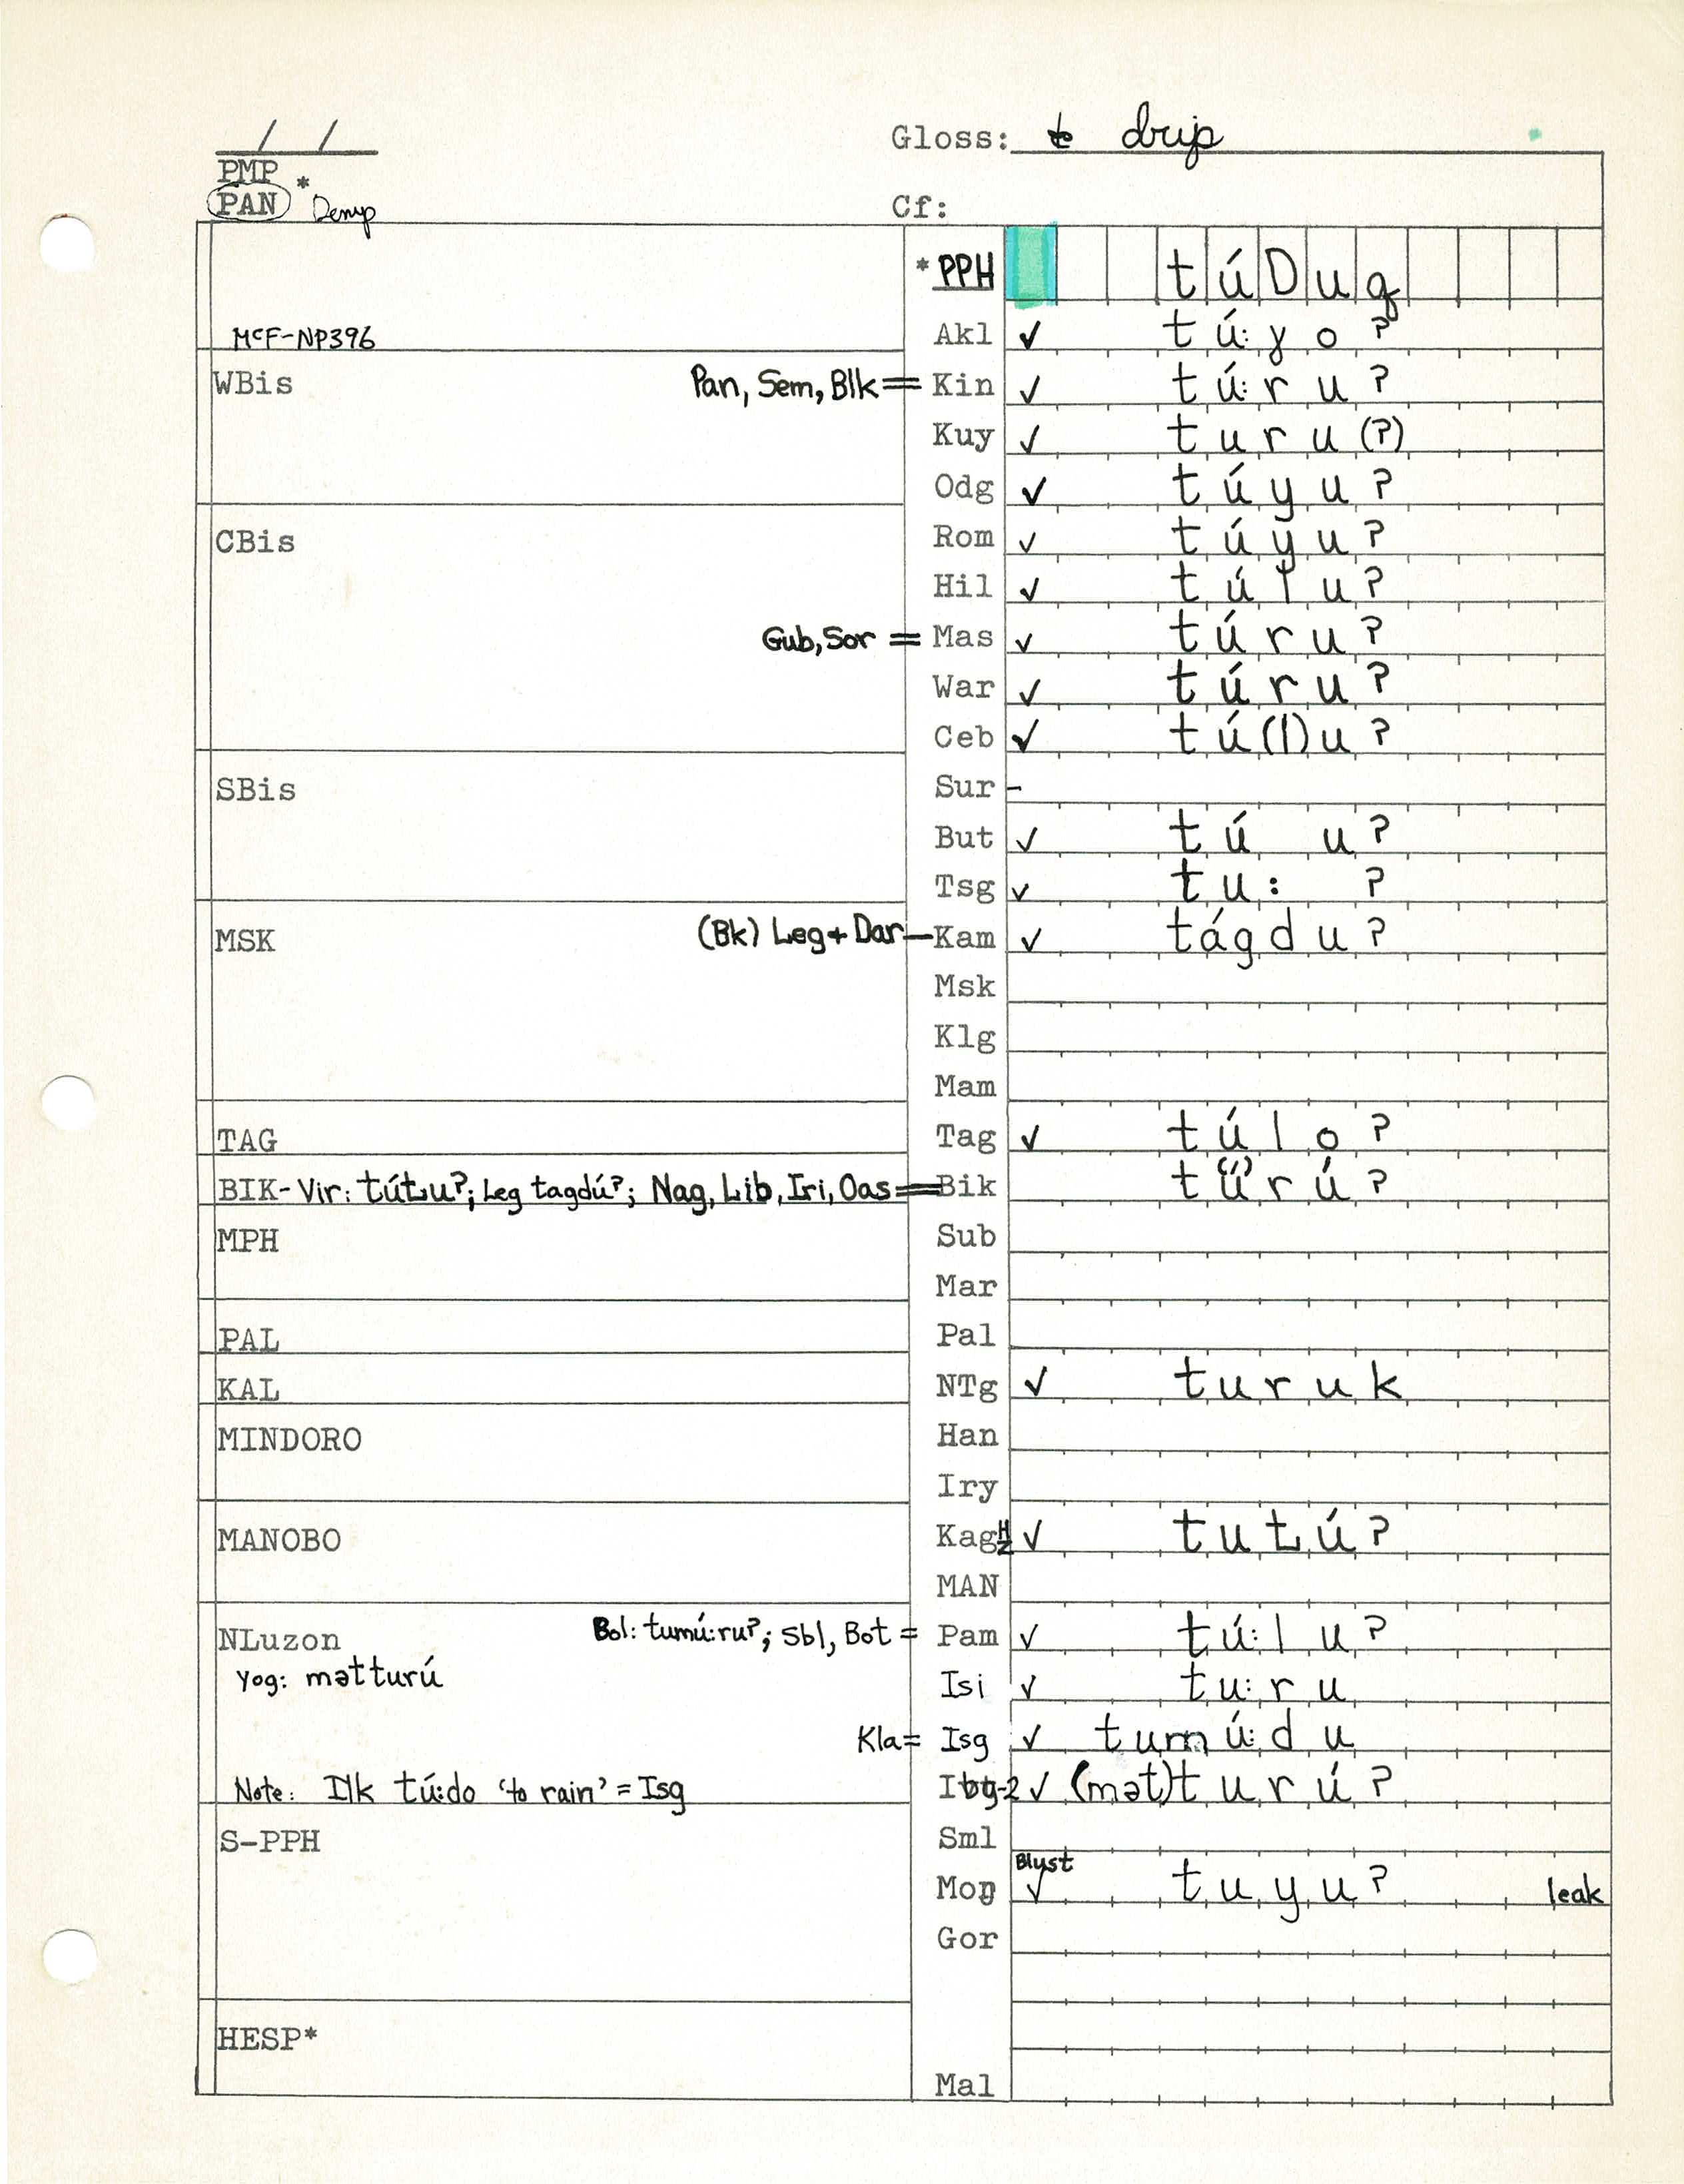 / /
Gloss: to drip
PMP
PAN * Demp
Cf:
*PPH túDuq
McF-NP396
Akl ✓ tú:ɣoʔ
WBis Pan, Sem, Blk = Kin ✓ tú:ruʔ
Kuy ✓ turu(ʔ)
Odg ✓ túyuʔ
CBis Rom ✓ túyuʔ
Hil ✓ túluʔ
Gub, Sor = Mas ✓ túruʔ
War ✓ túruʔ
Ceb ✓ tú(l)uʔ
SBis Sur -
But ✓ tú uʔ
Tsg ✓ tu: ʔ
MSK (Bk) Leg + Dar — Kam ✓ tágduʔ
Msk
Klg
Mam
TAG Tag ✓ túloʔ
BIK - Vir: tútuʔ; Leg tagdúʔ; Nag, Lib, Iri, Oas = Bik t(ú)rúʔ
MPH Sub
Mar
PAL Pal
KAL NTg ✓ turuk
MINDORO Han
Iry
MANOBO Kag ✓ tutúʔ
MAN
NLuzon Bol: tumú:ruʔ; Sbl, Bot = Pam ✓ tú:luʔ
Yog: mətturú Isi ✓ tu:ru
Kla = Isg ✓ tumú:du
Note: Ilk tú:do 'to rain' = Isg Ibg-2 ✓ (mət)turúʔ
S-PPH Sml
Blust
Moŋ ✓ tuyuʔ leak
Gor
HESP*
Mal